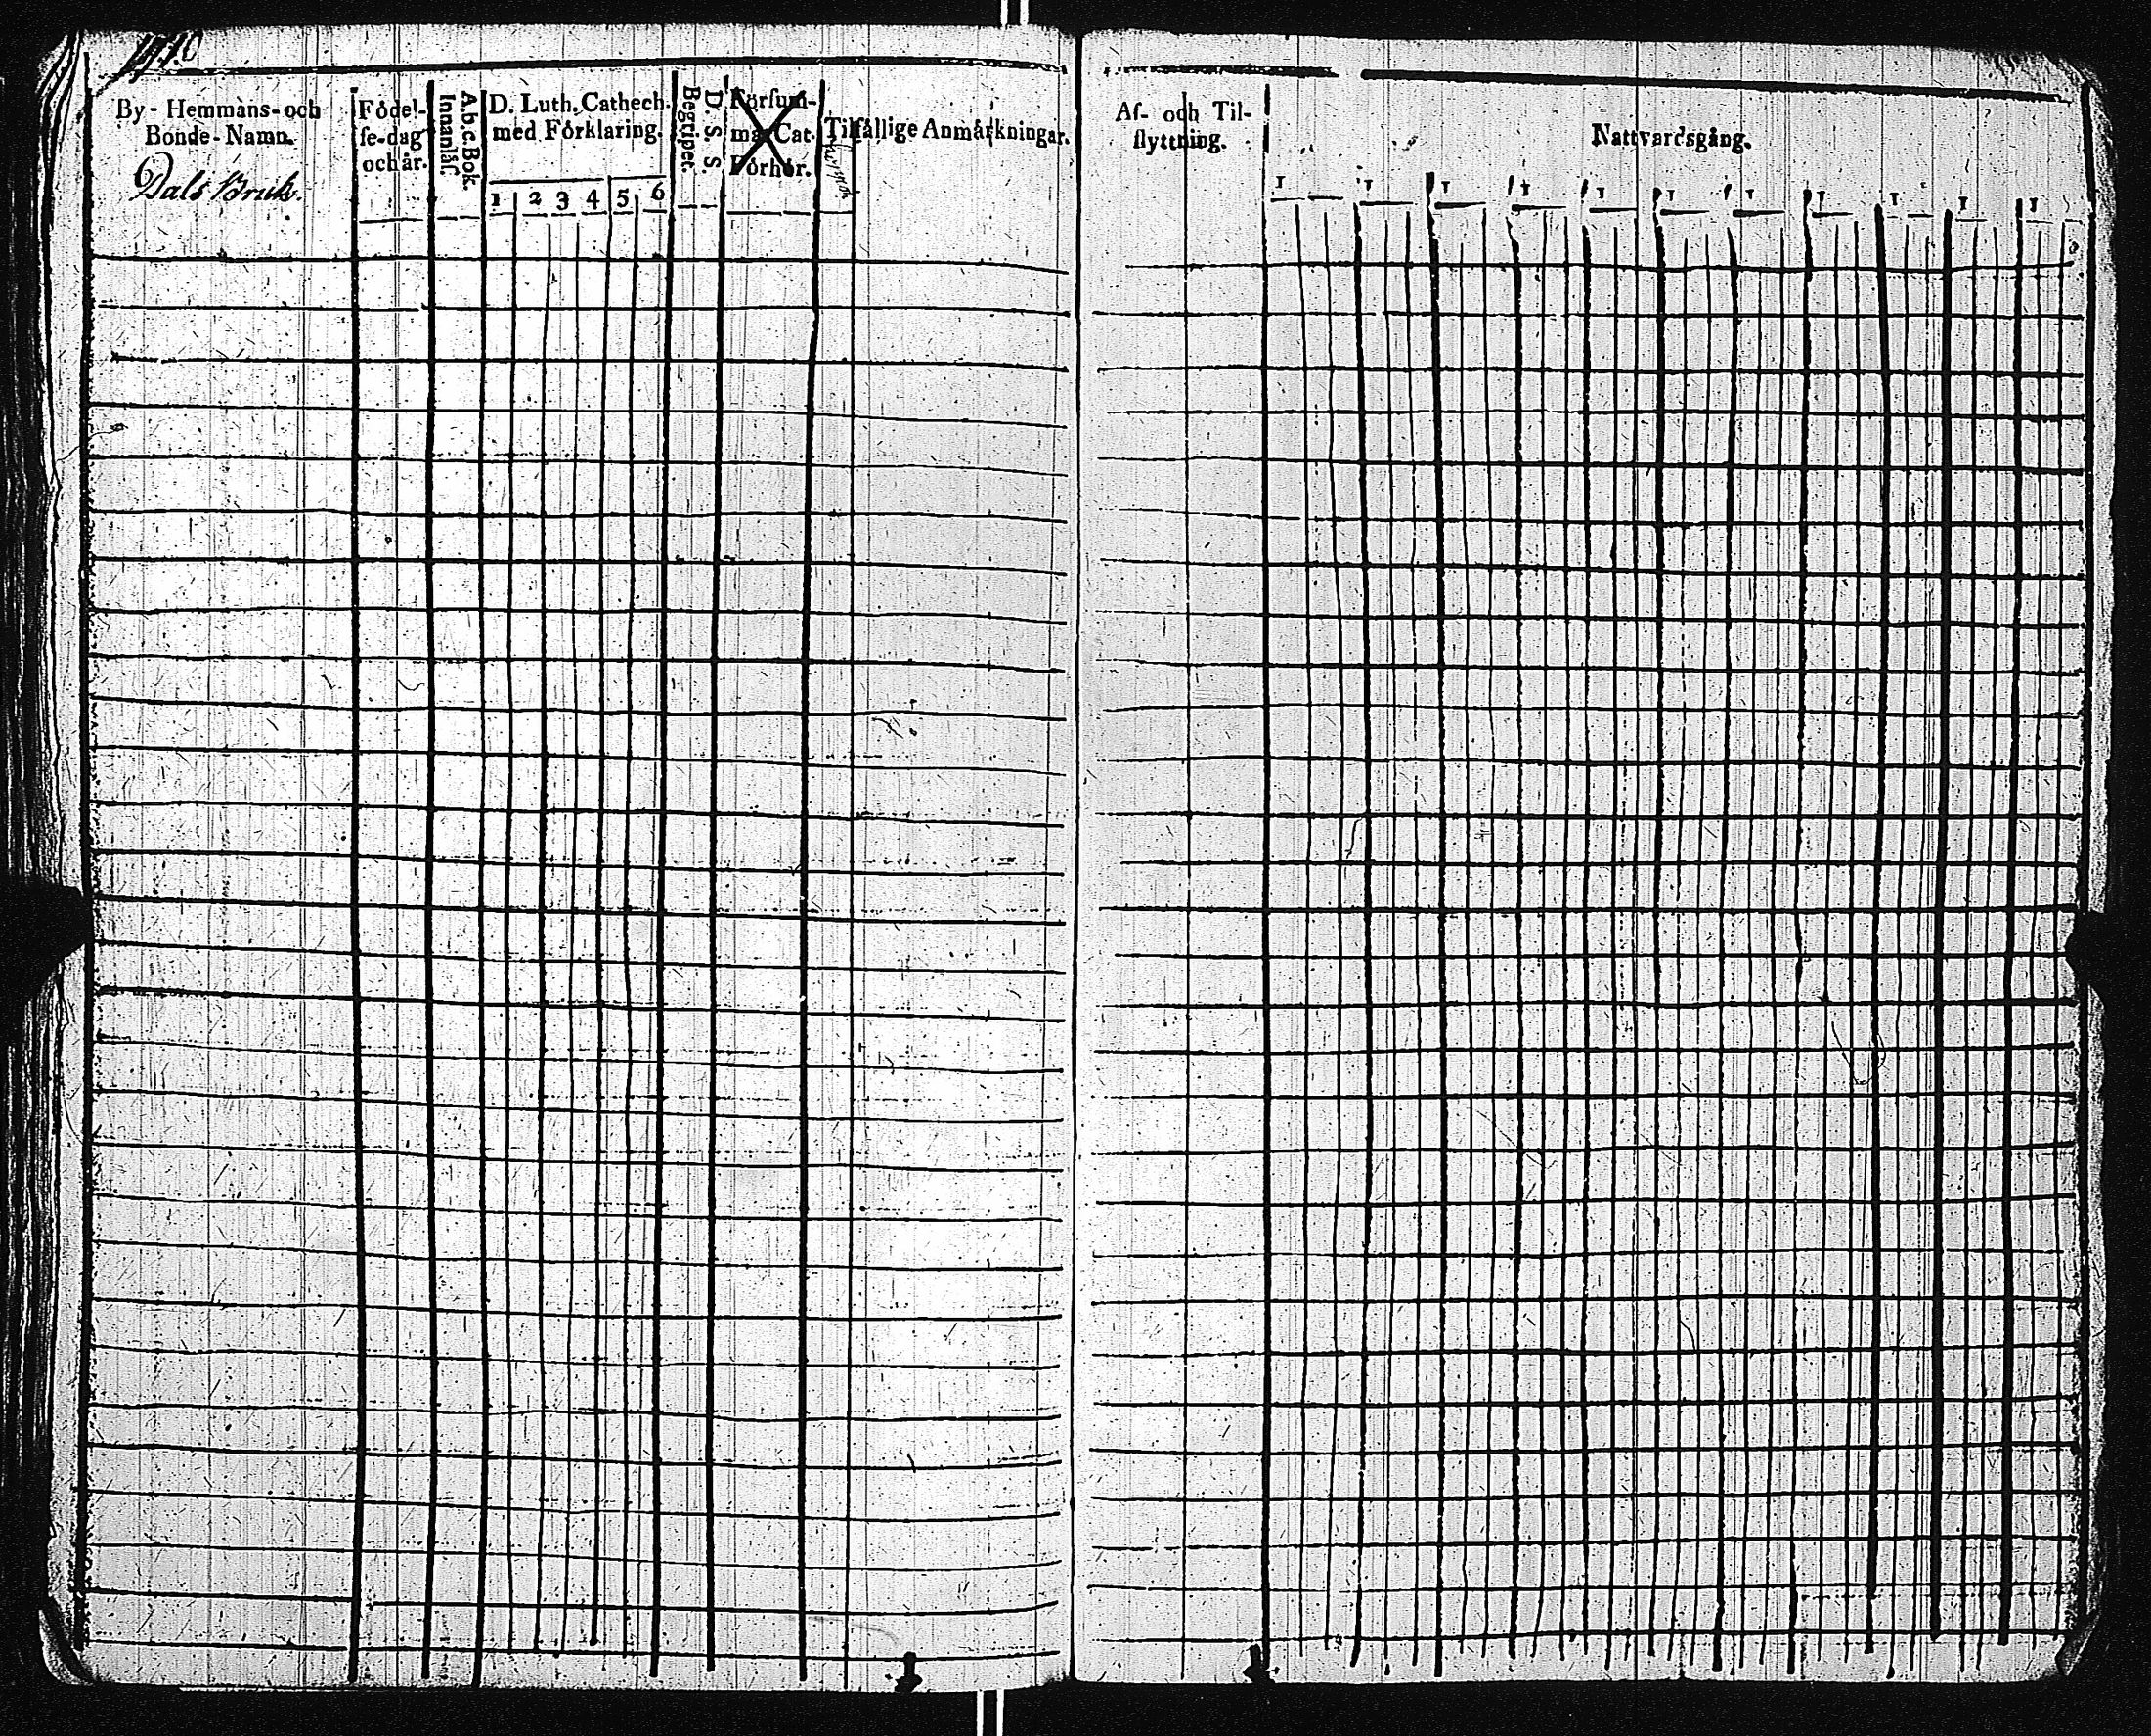 By-Hemmans-och
Bonde-Namn.
Dals Bruk.
Födel-
se-dag
och år.
A.b.c.Bok.
Innanläs.
D. Luth. Cathech.
med Förklaring.
1 2 3 4 5 6
D. S. S.
Begripet.
Försum-
mat Cat.
Förhör.
Tilfällige Anmärkningar.
Af- och Til-
flyttning.
Nattvardsgång.
1 1 1 1 1 1 1 1 1 1 1